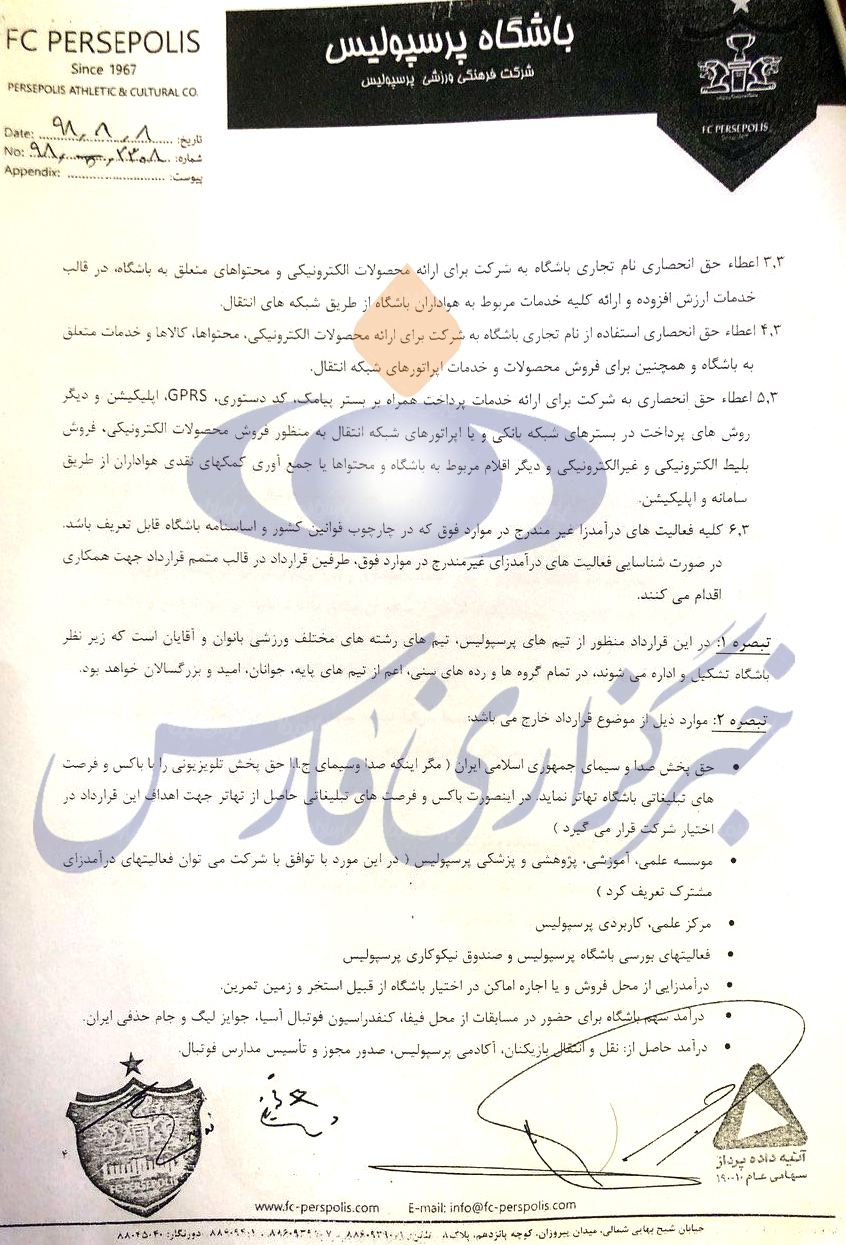 FC PERSEPOLIS
Since 1967
PERSEPOLIS ATHLETIC & CULTURAL CO.
باشگاه پرسپولیس
شرکت فرهنگی ورزشی پرسپولیس
FC PERSEPOLIS
Date: ۹۸،۸،۸ تاریخ:
No: شماره:
Appendix: پیوست:
۳٫۳ اعطاء حق انحصاری نام تجاری باشگاه به شرکت برای ارائه محصولات الکترونیکی و محتواهای متعلق به باشگاه، در قالب
خدمات ارزش افزوده و ارائه کلیه خدمات مربوط به هواداران باشگاه از طریق شبکه های انتقال.
۴٫۳ اعطاء حق انحصاری استفاده از نام تجاری باشگاه به شرکت برای ارائه محصولات الکترونیکی، محتواها، کالاها و خدمات متعلق
به باشگاه و همچنین برای فروش محصولات و خدمات اپراتورهای شبکه انتقال.
۵٫۳ اعطاء حق انحصاری به شرکت برای ارائه خدمات پرداخت همراه بر بستر پیامک، کد دستوری، GPRS، اپلیکیشن و دیگر
روش های پرداخت در بسترهای شبکه بانکی و یا اپراتورهای شبکه انتقال به منظور فروش محصولات الکترونیکی، فروش
بلیط الکترونیکی و غیرالکترونیکی و دیگر اقلام مربوط به باشگاه و محتواها یا جمع آوری کمکهای نقدی هواداران از طریق
سامانه و اپلیکیشن.
۶٫۳ کلیه فعالیت های درآمدزا غیر مندرج در موارد فوق که در چارچوب قوانین کشور و اساسنامه باشگاه قابل تعریف باشد.
در صورت شناسایی فعالیت های درآمدزای غیرمندرج در موارد فوق، طرفین قرارداد در قالب متمم قرارداد جهت همکاری
اقدام می کنند.
تبصره ۱: در این قرارداد منظور از تیم های پرسپولیس، تیم های رشته های مختلف ورزشی بانوان و آقایان است که زیر نظر
باشگاه تشکیل و اداره می شوند، در تمام گروه ها و رده های سنی، اعم از تیم های پایه، جوانان، امید و بزرگسالان خواهد بود.
تبصره ۲: موارد ذیل از موضوع قرارداد خارج می باشد:
• حق پخش صدا و سیمای جمهوری اسلامی ایران ( مگر اینکه صدا وسیمای ج.ا.ا حق پخش تلویزیونی را با باکس و فرصت
های تبلیغاتی باشگاه تهاتر نماید، در اینصورت باکس و فرصت های تبلیغاتی حاصل از تهاتر جهت اهداف این قرارداد در
اختیار شرکت قرار می گیرد )
• موسسه علمی، آموزشی، پژوهشی و پزشکی پرسپولیس ( در این مورد با توافق با شرکت می توان فعالیتهای درآمدزای
مشترک تعریف کرد )
• مرکز علمی، کاربردی پرسپولیس
• فعالیتهای بورسی باشگاه پرسپولیس و صندوق نیکوکاری پرسپولیس
• درآمدزایی از محل فروش و یا اجاره اماکن در اختیار باشگاه از قبیل استخر و زمین تمرین.
• درآمد سهم باشگاه برای حضور در مسابقات از محل فیفا، کنفدراسیون فوتبال آسیا، جوایز لیگ و جام حذفی ایران.
• درآمد حاصل از: نقل و انتقال بازیکنان، آکادمی پرسپولیس، صدور مجوز و تأسیس مدارس فوتبال.
خبرگزاری فارس
آتیه داده پرداز
سهامی عام
۴
www.fc-perspolis.com E-mail: info@fc-perspolis.com
خیابان شیخ بهایی شمالی، میدان پیروزان، کوچه پانزدهم، پلاک ۸ تلفن: دورنگار: ۸۸۰۴۵۰۴۰